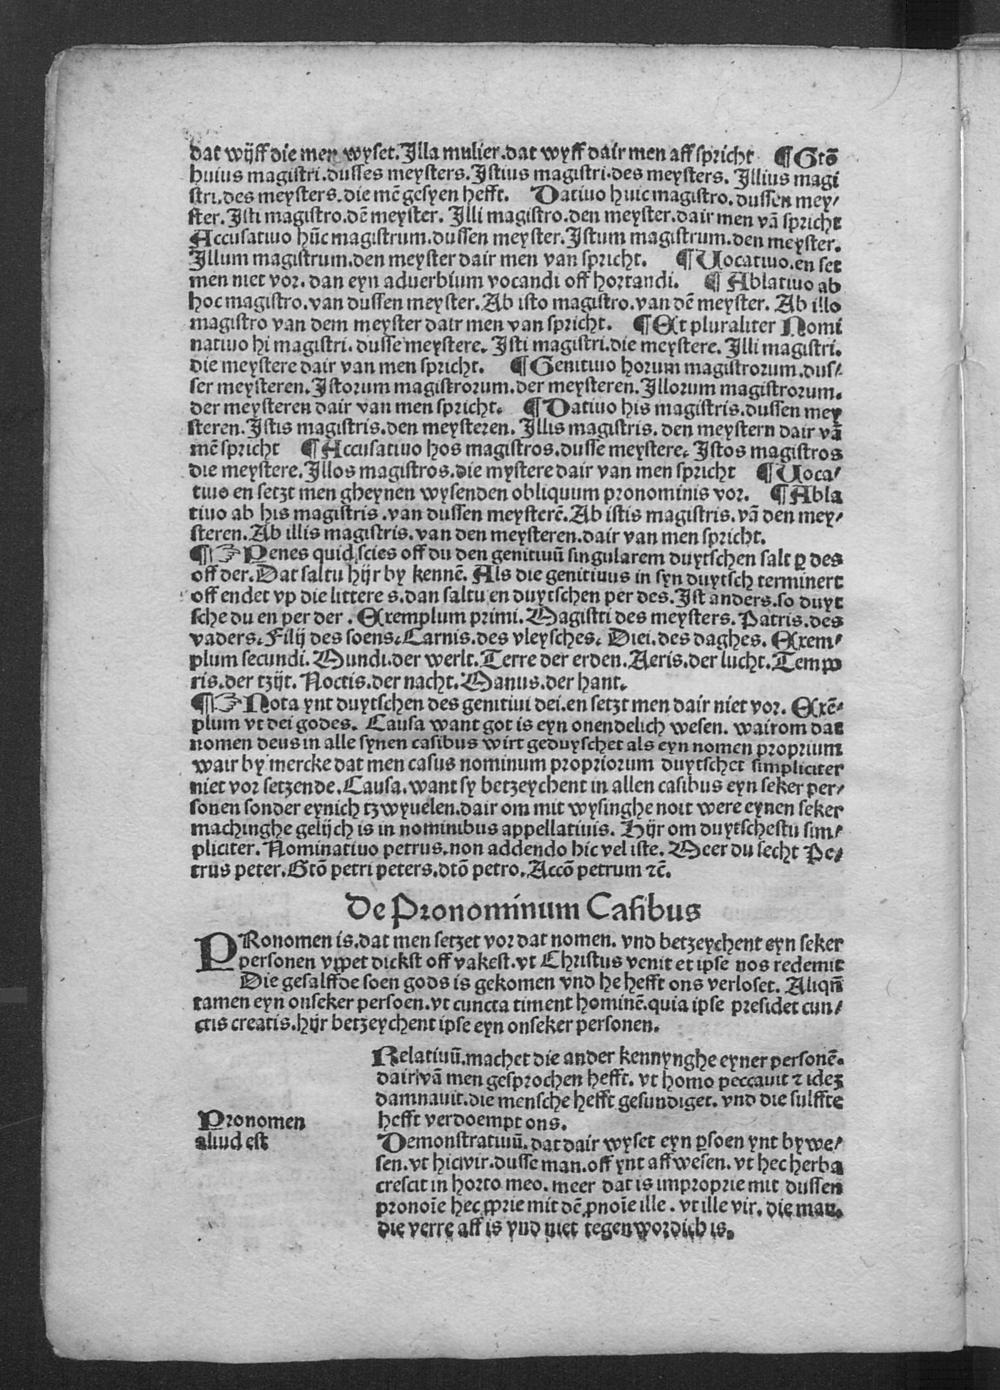 dat wijff die men wyset. Illa mulier. dat wyff dair men aff spricht ¶ Gtō
huius magistri. dusses meysters. Istius magistri. des meysters. Illius magi
stri. des meysters. die mē gesyen hefft. Datiuo huic magistro. dussen mey⸗
ster. Isti magistro. dē meyster. Illi magistro. den meyster. dair men vā spricht
Accusatiuo hūc magistrum. dussen meyster. Istum magistrum. den meyster.
Illum magistrum. den meyster dair men van spricht. ¶ Uocatiuo. en set
men niet vor. dan eyn aduerbium vocandi off hortandi. ¶ Ablatiuo ab
hoc magistro. van dussen meyster. Ab isto magistro. van dē meyster. Ab illo
magistro van dem meyster dair men van spricht. ¶ Et pluraliter Nomi
natiuo hi magistri. dusse meystere. Isti magistri. die meystere. Illi magistri.
die meystere dair van men spricht. ¶ Genitiuo horum magistrorum. dus⸗
ser meysteren. Istorum magistrorum. der meysteren. Illorum magistrorum.
der meysteren dair van men spricht. ¶ Datiuo his magistris. dussen mey
steren. Istis magistris. den meysteren. Illis magistris. den meystern dair vā
mē spricht ¶ Accusatiuo hos magistros. dusse meystere. Istos magistros
die meystere. Illos magistros. die mystere dair van men spricht ¶ Uoca⸗
tiuo en setzt men gheynen wysenden obliquum pronominis vor. ¶ Abla
tiuo ab his magistris. van dussen meysterē. Ab istis magistris. vā den mey⸗
steren. Ab illis magistris. van den meysteren. dair van men spricht.
¶ ☞ Penes quid scies off du den genitiuū singularem duytschen salt ꝑ des
off der. Dat saltu hijr by kennē. Als die genitiuus in syn duytsch terminert
off endet vp die littere s. dan saltu en duytschen per des. Ist anders. so duyt
sche du en per der. Exemplum primi. Magistri des meysters. Patris. des
vaders. Filij des soens. Carnis. des vleysches. Diei. des daghes. Exem⸗
plum secundi. Mundi. der werlt. Terre der erden. Aeris. der lucht. Tempo
ris. der tzijt. Noctis. der nacht. Manus. der hant.
¶ ☞ Nota ynt duytschen des genitiui dei. en setzt men dair niet vor. Exē⸗
plum vt dei godes. Causa want got is eyn onendelich wesen. wairom dat
nomen deus in alle synen casibus wirt geduyschet als eyn nomen proprium
wair by mercke dat men casus nominum propriorum duytschet simpliciter
niet vor setzende. Causa. want sy betzeychent in allen casibus eyn seker per⸗
sonen sonder eynich tzwyuelen. dair om mit wysinghe noit were eynen seker
machinghe gelijch is in nominibus appellatiuis. Hijr om duytschestu sim⸗
pliciter. Nominatiuo petrus. non addendo hic vel iste. Meer du secht Pe⸗
trus peter. Gtō petri peters. dtō petro. Accō petrum ⁊c̄.
De Pronominum Casibus
PRonomen is. dat men setzet vor dat nomen. vnd betzeychent eyn seker
personen vppet dickst off vakest. vt Christus venit et ipse nos redemit
Die gesalffde soen gods is gekomen vnd he hefft ons verloset. Aliqn̄
tamen eyn onseker persoen. vt cuncta timent hominē. quia ipse presidet cun⸗
ctis creatis. hijr betzeychent ipse eyn onseker personen.
Relatiuū. machet die ander kennynghe eyner personē.
dair vā men gesprochen hefft. vt homo peccauit ⁊ idez
damnauit. die mensche hefft gesundiget. vnd die sulffte
hefft verdoempt ons.
Pronomen
aliud est
Demonstratiuū. dat dair wyset eyn ꝑsoen ynt bywe⸗
sen. vt hic vir. dusse man. off ynt affwesen. vt hec herba
crescit in horto meo. meer dat is improprie mit dussen
pronoīe hec ꝓprie mit dē ꝓnoīe ille. vt ille vir. die man.
die verre aff is vnd niet tegenwordich is.